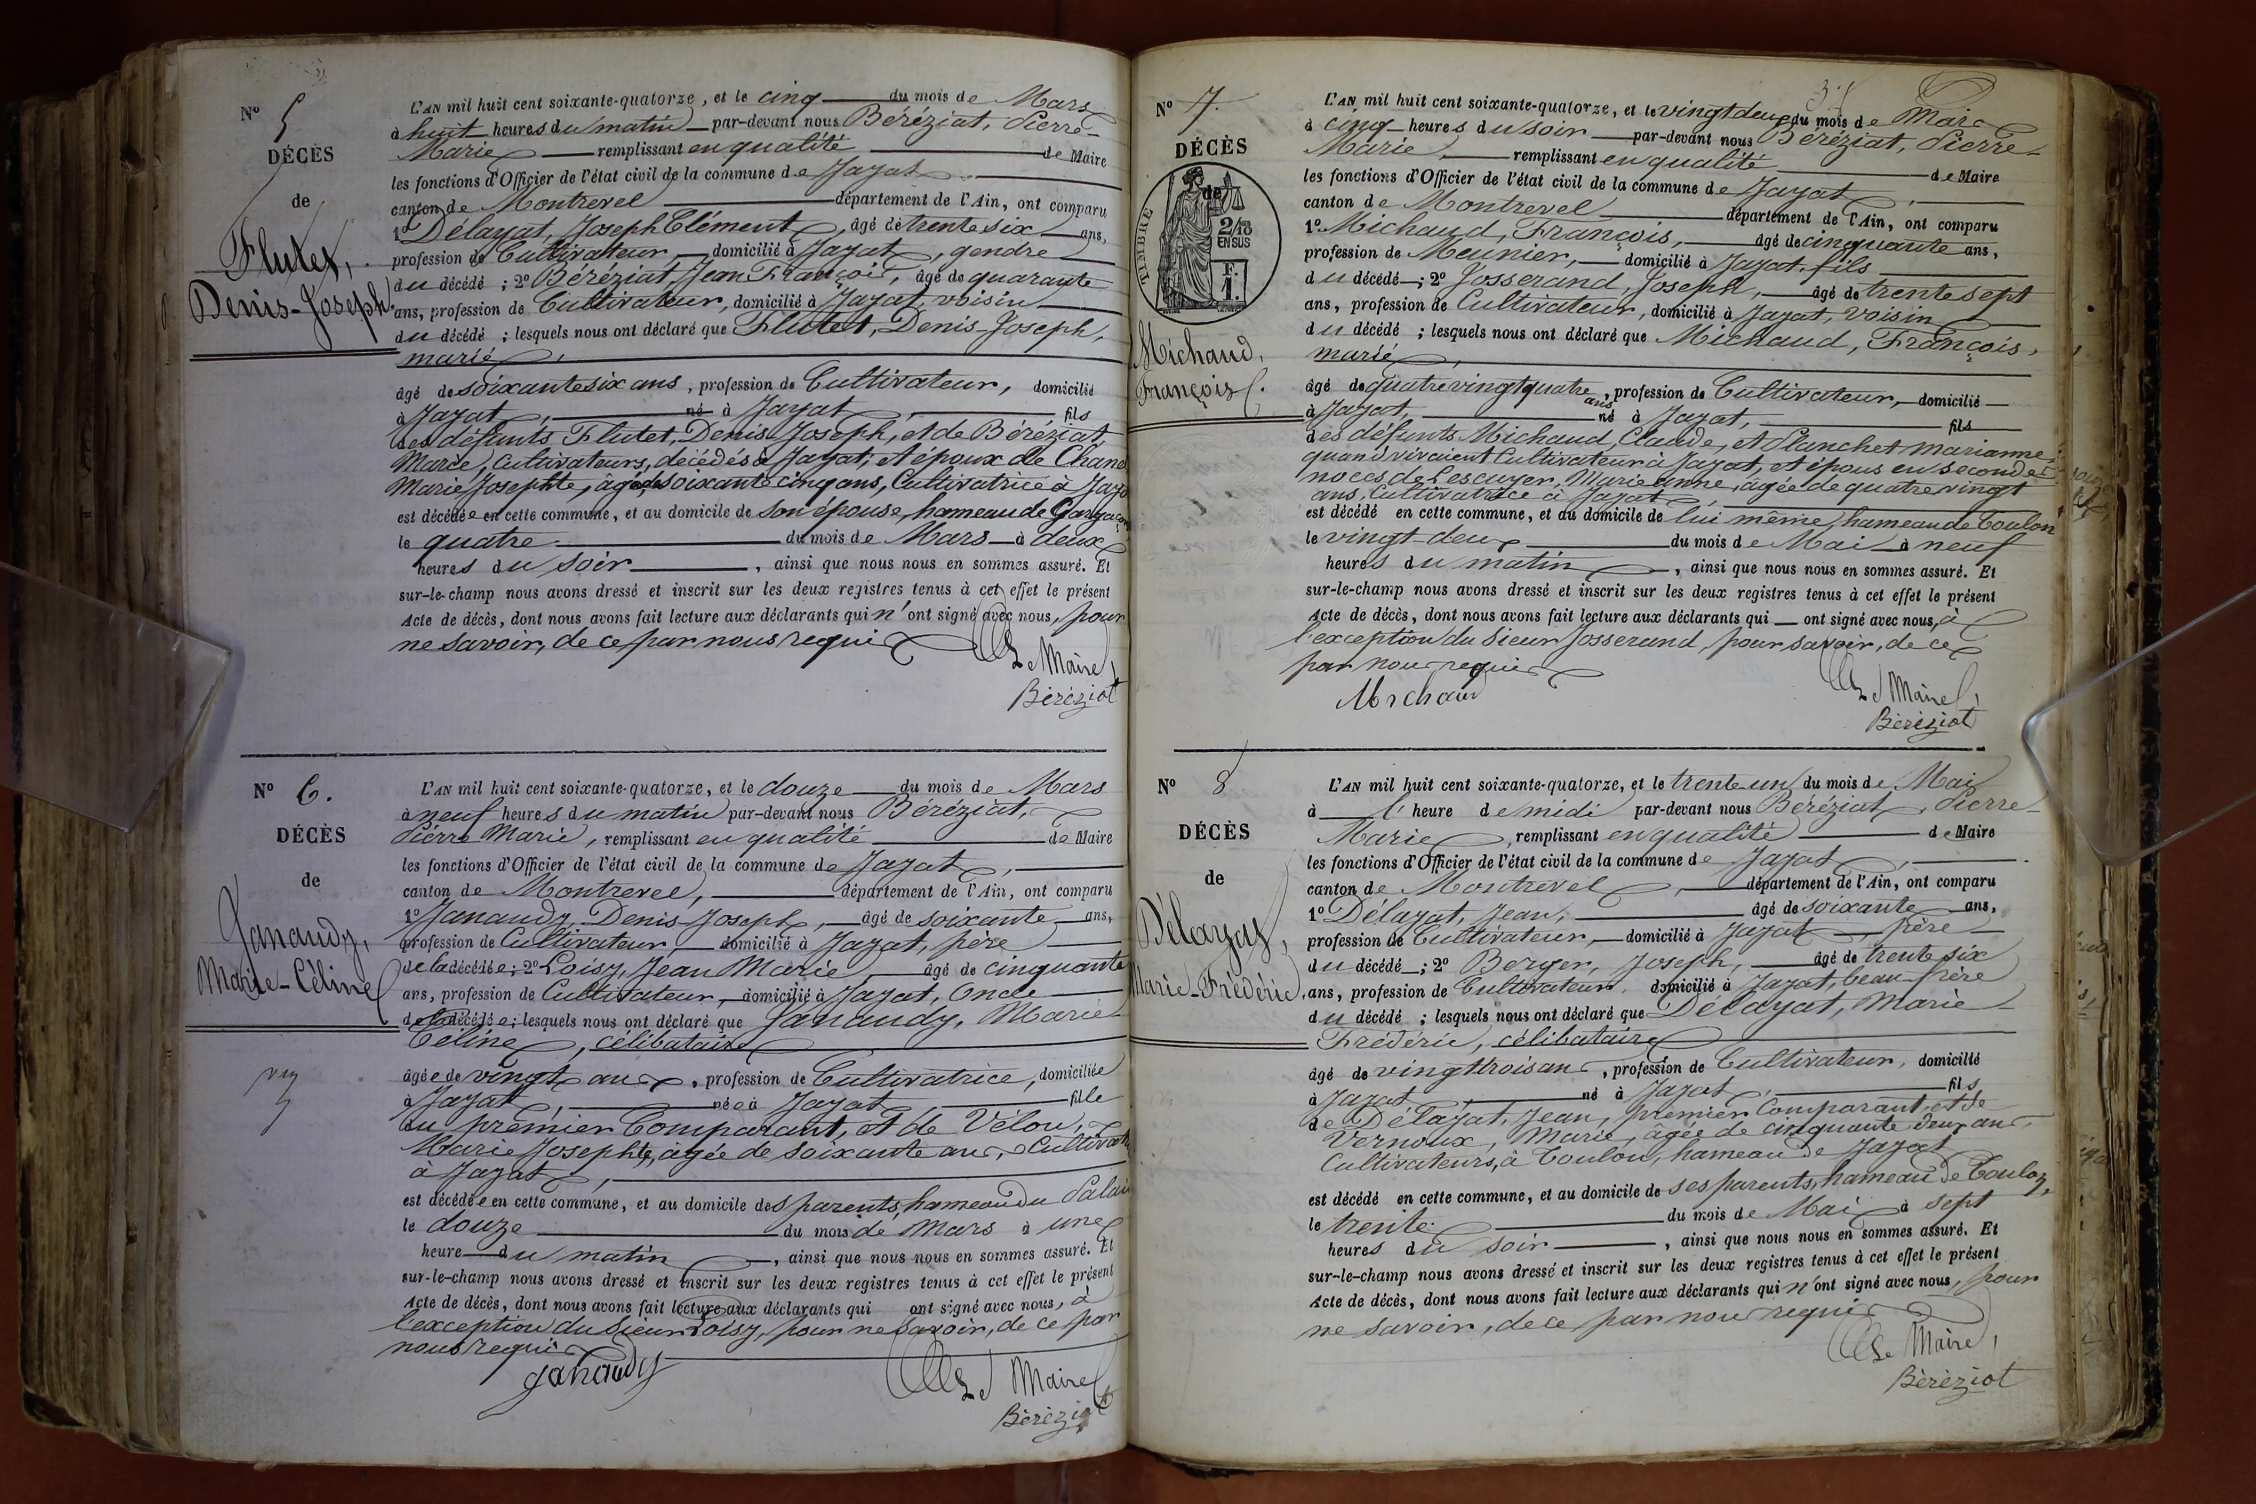 Nº 5
DÉCÈS
de
Flutet,
Denis-Joseph.
L'AN mil huit cent soixante-quatorze, et le cinq du mois de Mars
à huit heures du matin par-devant nous Béréziat, Pierre-
Marie remplissant en qualité de Maire
les fonctions d'Officier de l'état civil de la commune de Jayat
canton de Montrevel département de l'Ain, ont comparu
1º Délayat, Joseph Clément, âgé de trente six ans,
profession de Cultivateur, domicilié à Jayat, gendre
du décédé ; 2º Béréziat, Jean François, âgé de quarante
ans, profession de Cultivateur, domicilié à Jayat, voisin
du décédé ; lesquels nous ont déclaré que Flutet, Denis-Joseph,
marié,
âgé de soixante six ans, profession de Cultivateur, domicilié
à Jayat, né à Jayat, fils
des défunts Flutet, Denis Joseph, et de Béréziat,
Marie, Cultivateurs, décédés à Jayat, et époux de Chanel
Marie Josephte, âgée de soixante cinq ans, Cultivatrice à Jaya
est décédé en cette commune, et au domicile de son épouse, hameau de
le quatre du mois de Mars à deux
heures du soir, ainsi que nous nous en sommes assuré. Et
sur-le-champ nous avons dressé et inscrit sur les deux registres tenus à cet effet le présent
Acte de décès, dont nous avons fait lecture aux déclarants qui n'ont signé avec nous, pour
ne savoir, de ce par nous requis
Le Maire,
Béréziat
Nº 6.
DÉCÈS
de
Janaudy,
Marie-Céline
L'AN mil huit cent soixante-quatorze, et le douze du mois de Mars
à neuf heures du matin par-devant nous Béréziat,
Pierre Marie, remplissant en qualité de Maire
les fonctions d'Officier de l'état civil de la commune de Jayat,
canton de Montrevel, département de l'Ain, ont comparu
1º Janaudy, Denis-Joseph, âgé de soixante ans,
profession de Cultivateur domicilié à Jayat, père
de la décédée ; 2º Loisy, Jean Marie, âgé de cinquante
ans, profession de Cultivateur, domicilié à Jayat, Oncle
de la décédée ; lesquels nous ont déclaré que Janaudy, Marie
Céline, célibataire
âgée de vingt ans, profession de Cultivatrice, domiciliée
à Jayat, née à Jayat, fille
du premier Comparant, et de Vélou,
Marie Josephte, âgée de soixante ans, Cultivat
à Jayat,
est décédée en cette commune, et au domicile des parents, hameau du Palais
le douze du mois de Mars à une
heure du matin, ainsi que nous nous en sommes assuré. Et
sur-le-champ nous avons dressé et inscrit sur les deux registres tenus à cet effet le présent
Acte de décès, dont nous avons fait lecture aux déclarants qui ont signé avec nous, à
l'exception du Sieur Loisy, pour ne savoir, de ce par
nous requis
Janaudy
Le Maire
Béréziat
Nº 7.
DÉCÈS
de
TIMBRE
2/10
EN SUS
F.
1.
Michaud,
François.
L'AN mil huit cent soixante-quatorze, et le vingt deux du mois de Mai
à cinq heures du soir par-devant nous Béréziat, Pierre-
Marie, remplissant en qualité de Maire
les fonctions d'Officier de l'état civil de la commune de Jayat,
canton de Montrevel département de l'Ain, ont comparu
1º Michaud, François, âgé de cinquante ans,
profession de Meunier, domicilié à Jayat, fils
du décédé ; 2º Josserand, Joseph, âgé de trente sept
ans, profession de Cultivateur, domicilié à Jayat, voisin
du décédé ; lesquels nous ont déclaré que Michaud, François,
marié,
âgé de quatre vingt quatre ans, profession de Cultivateur, domicilié
à Jayat, né à Jayat, fils
des défunts Michaud, Claude, et Planchet Marianne,
quand vivaient Cultivateur à Jayat, et époux en secondes
noces de Lescuyer, Marie Anne, âgée de quatre vingt
ans, Cultivatrice à Jayat,
est décédé en cette commune, et au domicile de lui même, hameau de Coulon
le vingt deux du mois de Mai à neuf
heures du matin, ainsi que nous nous en sommes assuré. Et
sur-le-champ nous avons dressé et inscrit sur les deux registres tenus à cet effet le présent
Acte de décès, dont nous avons fait lecture aux déclarants qui ont signé avec nous, à
l'exception du Sieur Josserand, pour savoir, de ce
par nous requis
Michaud
Le Maire,
Béréziat
Nº 8
DÉCÈS
de
Délayat,
Marie-Frédéric.
L'AN mil huit cent soixante-quatorze, et le trente un du mois de Mai
à l'heure de midi par-devant nous Béréziat, Pierre-
Marie, remplissant en qualité de Maire
les fonctions d'Officier de l'état civil de la commune de Jayat,
canton de Montrevel, département de l'Ain, ont comparu
1º Délayat, Jean, âgé de soixante ans,
profession de Cultivateur, domicilié à Jayat, père
du décédé ; 2º Berger, Joseph, âgé de trente six
ans, profession de Cultivateur, domicilié à Jayat, beau-frère
du décédé ; lesquels nous ont déclaré que Délayat, Marie-
Frédéric, célibataire
âgé de vingt trois ans, profession de Cultivateur, domicilié
à Jayat, né à Jayat, fils
de Délayat, Jean, premier Comparant, et de
Vernoux, Marie, âgée de cinquante deux ans,
Cultivateurs, à Coulon, hameau de Jayat
est décédé en cette commune, et au domicile de ses parents, hameau de Coulon,
le trente du mois de Mai à sept
heures du soir, ainsi que nous nous en sommes assuré. Et
sur-le-champ nous avons dressé et inscrit sur les deux registres tenus à cet effet le présent
Acte de décès, dont nous avons fait lecture aux déclarants qui n'ont signé avec nous, pour
ne savoir, de ce par nous requis
Le Maire,
Béréziat